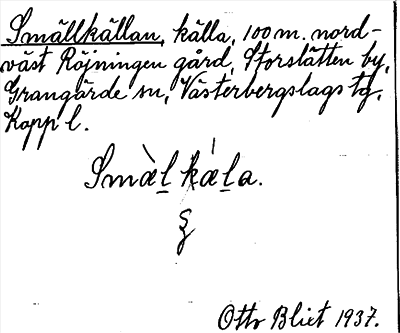 Smällkällan, källa, 100 m. nord-
väst Röjningen gård, Storslätten by,
Grangärde sn, Västerbergslags tg,
Kopp l.
Smæ̀l kæ̍la.
Otto Blixt 1937.